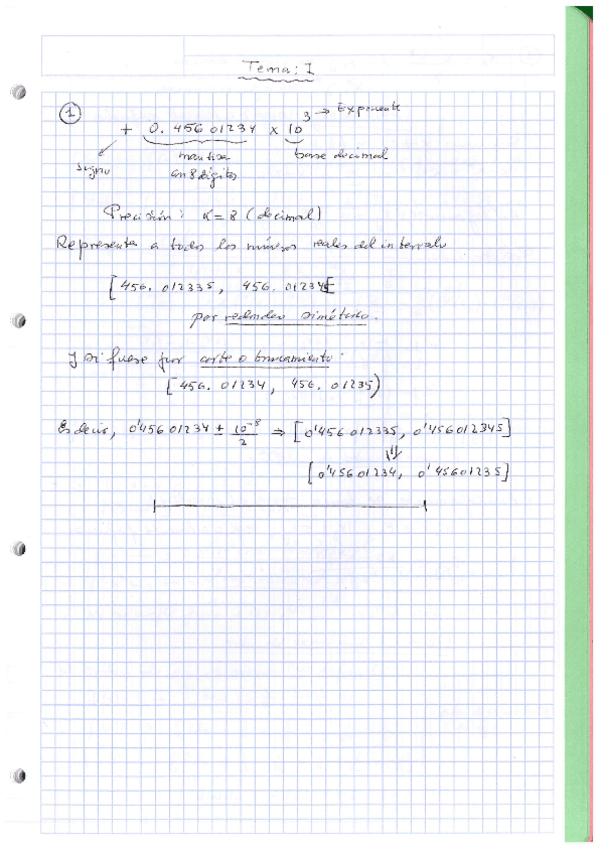 Tema: I
1
3 → Exponente
+ 0. 45601234 x 10
signo mantisa base decimal
con 8 dígitos
Precisión: K = 8 (decimal)
Representa a todos los números reales del intervalo
[456. 012335, 456. 012345[
por redondeo simétrico.
Y si fuese por corte o truncamiento:
[456. 01234, 456. 01235)
Es decir, 0'45601234 ± 10⁻⁸/2 ⇒ [0'456012335, 0'456012345]
⇓
[0'45601234, 0'45601235]